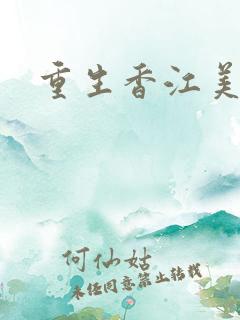 重生香江美
何仙姑
未经同意禁止转载